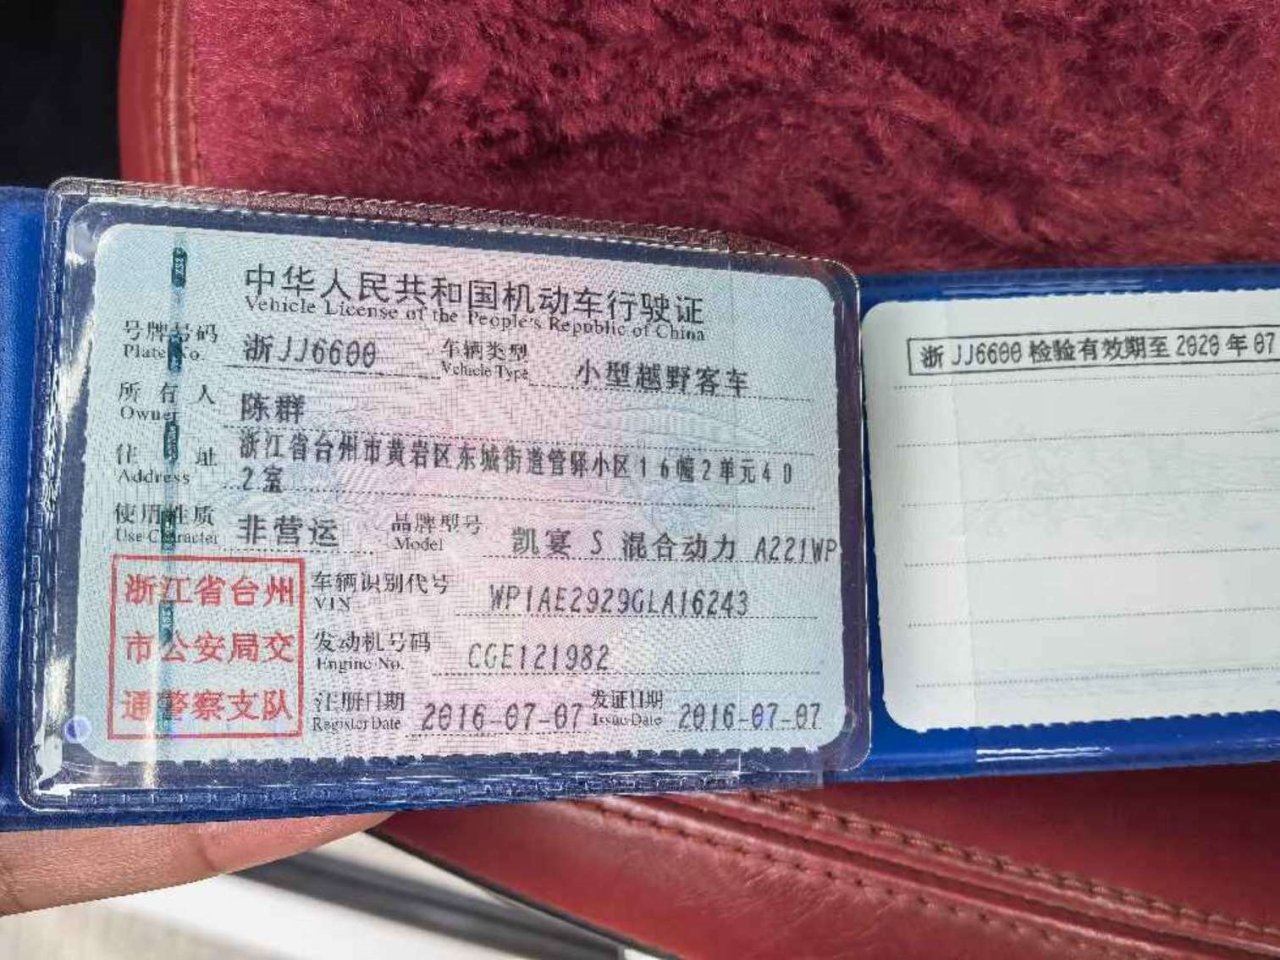 中华人民共和国机动车行驶证
Vehicle License of the People's Republic of China
号牌号码 浙JJ6600 车辆类型 小型越野客车
Plate No. Vehicle Type
所有人 陈群
Owner
住址 浙江省台州市黄岩区东城街道管驿小区16幢2单元40
Address 2室
使用性质 非营运 品牌型号 凯宴 S 混合动力 A221WP
Use Character Model
浙江省台州 车辆识别代号 WP1AE2929GLA16243
VIN
市公安局交 发动机号码 CGE121982
Engine No.
通警察支队 注册日期 2016-07-07 发证日期 2016-07-07
Register Date Issue Date
浙JJ6600 检验有效期至 2020 年 07